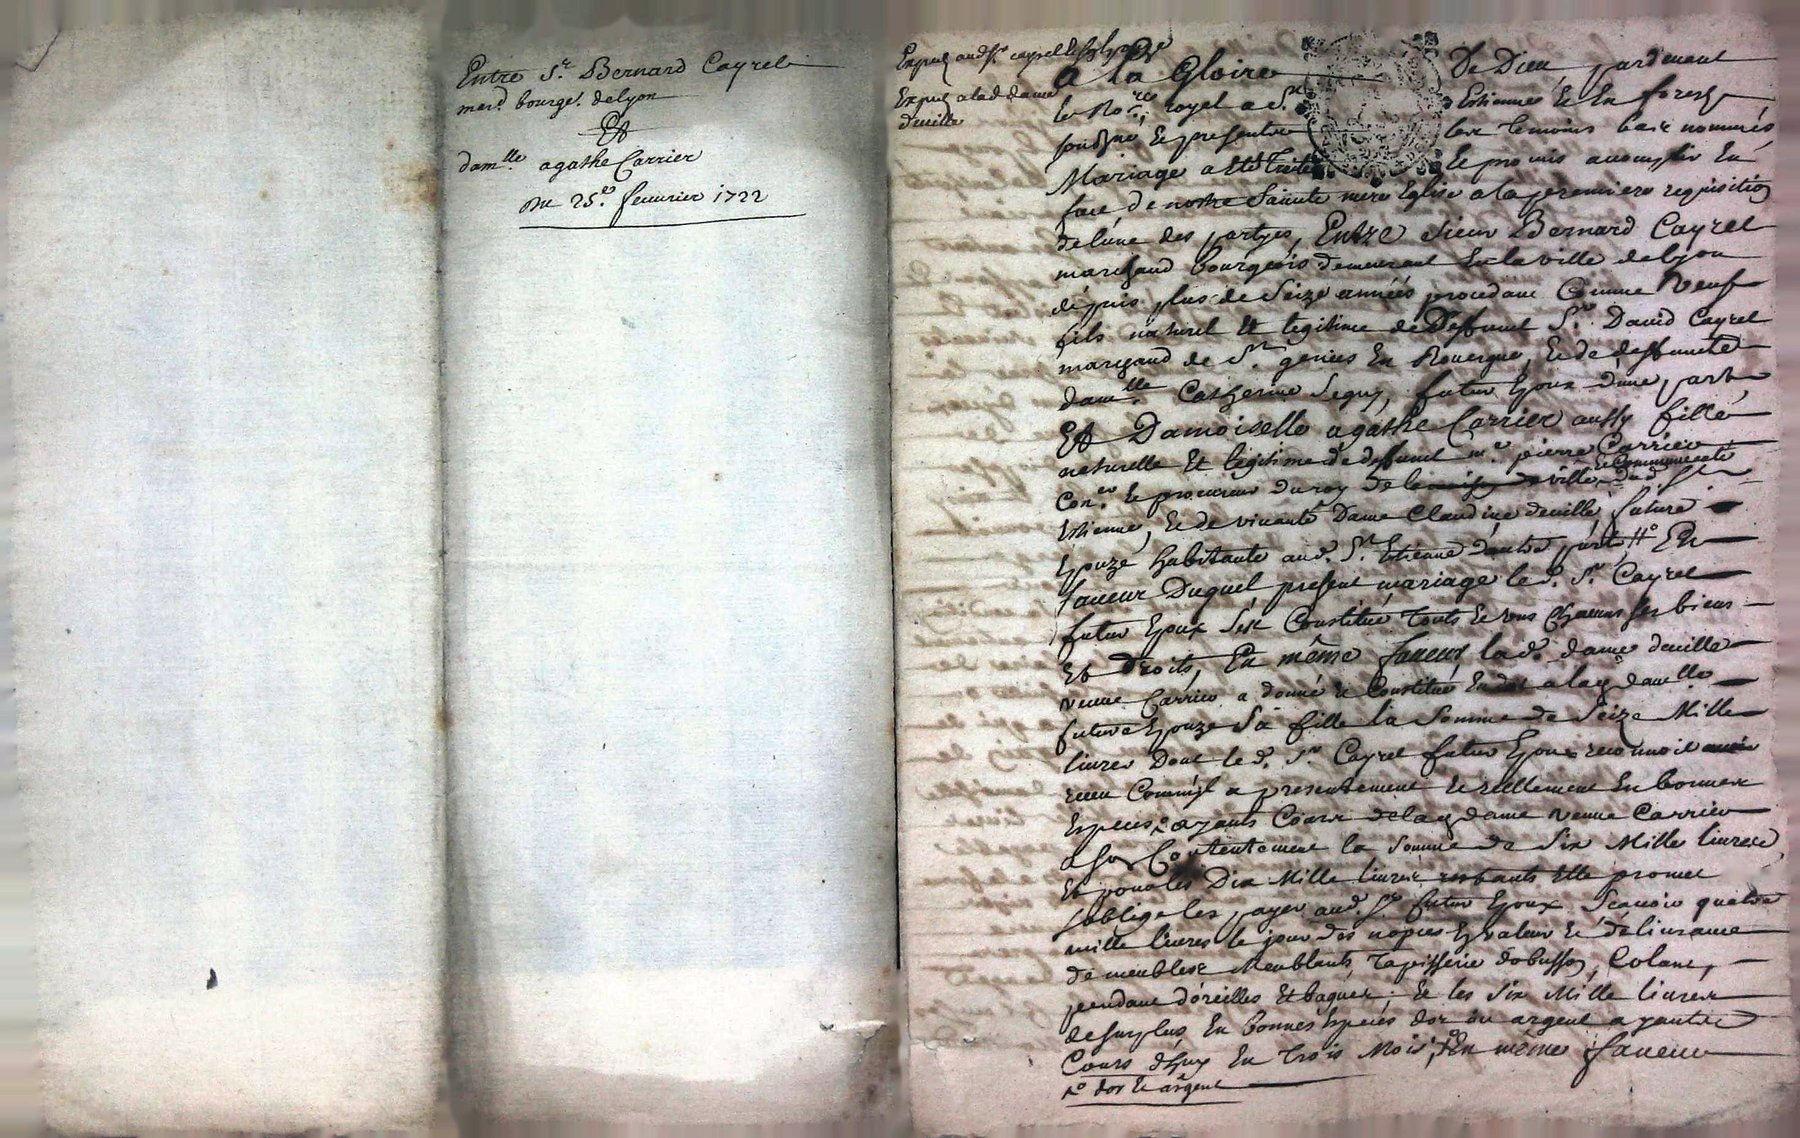 Entre Sr. Bernard Cayrel
merd. bourge. delyon
Et
damlle. agathe Carrier
Du 25e. feuurier 1722
Expedé audSr. cayrel
Expedé aladdame
deuille
A la Gloire De Dieu pardeuant
le Nore. royal a St. Estienne En forest
soubsné Et presentre les temoins bas nommés
Mariage a eté traité Et promis accomplir En
face de nostre Sainte mere Eglise a la premiere requisition
delune des partyes, Entre Sieur Bernard Cayrel
marchand bourgeois demeurant En la ville delyon
depuis plus de Seize années procedant Comme Veuf
fils naturel Et legitime de Deffunct Sr. David Cayrel
marchand de St. genies En Rouergue, Et de deffuncte
damlle Catherine Seguy, futur Epoux d'une part
Et Damoiselle agathe Carrier aussy fille
naturelle Et legitime dedeffunct me. pierre Carrier
Coner. Et procureur du roy de la ville Et Communauté dud. St.
Estienne, Et de viuante Dame Claudine deuille, future
Epouze habitante aud. St. Etienne d'autre part # En
faueur Duquel present mariage le d. Sr. Cayrel
futur Epoux s'est Constitué touts Et uns Chacuns ses biens
Et Droits, En même faueur lad. dame deuille
veuue Carrier a donné Et Constitué En dot alad damlle
future Epouze Sa fille la Somme de Seize Mille
liures Dont le d. Sr. Cayrel futur Epoux reconnoit auoir
receu Comme a presentement Et reellement En bonnes
Especes x ayants Cours delad dame veuue Carrier
a son Contentement la Somme de Six Mille liures,
Et pour les Dix Mille liures restants Elle promet
soblige les payer aud. Sr. futur Epoux Scauoir quatre
mille liures le jour des nopces En valeur Et deliurance
de meubles Meublants, Tapisserie dobusson, Colane,
pendant d'oreilles Et bagues; Et les Six Mille liures
desurplus En bonnes Especes dor ou argent ayants
Cours dhuy En trois Mois, En même faueur
x dor Et argent